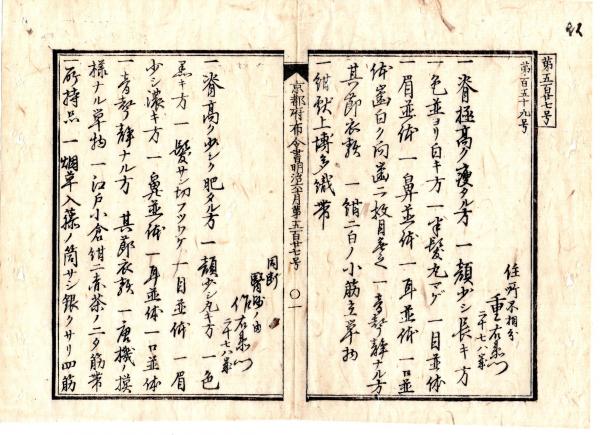 第五百廿七号
第二百五十九号
住所不相分
重右衛門
二十七八歳
一 脊極高ク痩タル方 一 顔少シ長キ方
一 色並ヨリ白キ方 一 半髪丸マゲ 一 目並体
一 眉並体 一 鼻並体 一 耳並体 一 口並
体歯白ク向歯二枚目 一 音声静ナル方
其節衣類 一 紺二白ノ小筋立単物
一 紺献上博多織帯
京都府布令書明治六年十月第五百廿七号 〇一
同断
作右衛門
二十七八歳
一 脊高ク少シク肥タル方 一 顔少シ丸キ方 一 色
黒キ方 一 髪サン切フツワケ 一 目並体 一 眉
少シ濃キ方 一 鼻並体 一 耳並体 一 口並体
一 音声静ナル方 其節衣類 一 唐機ノ模
様ナル単物 一 江戸小倉紺二赤茶ノ二タ筋帯
一 所持品 一 烟草入籐ノ筒サシ銀クサリ四筋